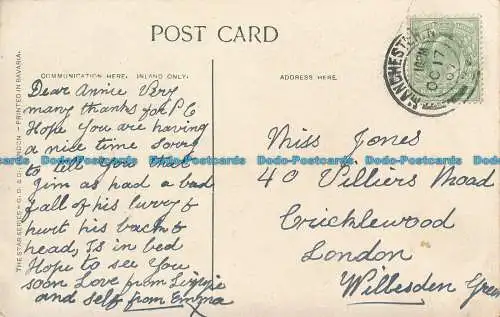 POST CARD
COMMUNICATION HERE, INLAND ONLY.
ADDRESS HERE.
THE STAR SERIES - G. D. & D., LONDON - PRINTED IN BAVARIA.
MANCHESTER
OC 17
Dear Annie Very
many thanks for P C
Hope You are having
a nice time Sorry
to tell You that
Jim as had a bad
fall of his lurry &
hurt his back &
head, Is in bed
Hope to see You
soon Love from Lizzie
and self from Emma
Miss Jones
40 Villiers Road
Cricklewood
London
Willesden Green
Dodo-Postcards Dodo-Postcards Dodo-Postcards Dodo-Postcards